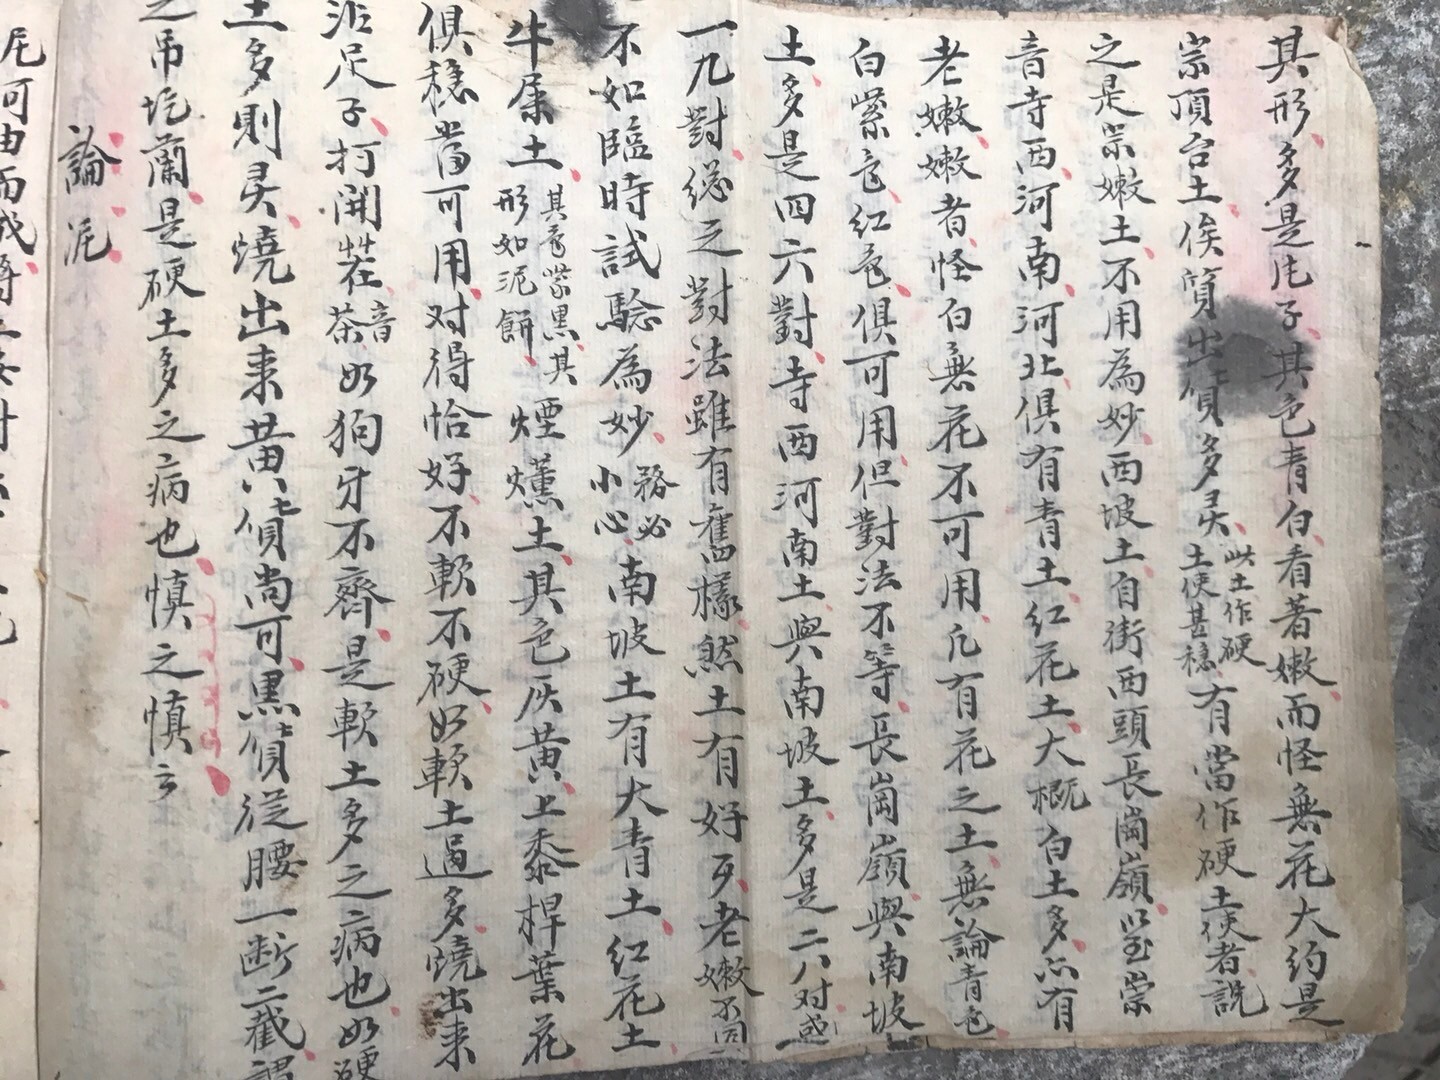 其形多是庀子其色青白看著嫩而怪無花大约是
崇頂台土俟算出貨多灵此土作硬土使甚穩有當作硬土使者説
之是崇嫩土不用為妙西坡土自街西頭長崗嶺以至崇
音寺西河南河北俱有青土红花土大概白土多亦有
老嫩嫩者怪白無花不可用凡有花之土無論青色
白紫色红色俱可用但對法不等長崗嶺與南坡
土多是四六對寺西河南土與南坡土多是二八对或
一九對総之對法雖有舊樣然土有好歹老嫩不同
不如臨時試驗為妙務必小心南坡土有大青土红花土
牛屎土其色紫黑其形如泥餅煙燻土其色灰黄上黍桿葉花
俱穩當可用对得恰好不軟不硬如軟土過多燒出来
沾足子打開茬音茶如狗牙不齊是軟土多之病也如硬
土多則灵燒出来黄貨尚可黑貨從腰一断二截謂
之吊圪蘭是硬土多之病也慎之慎云
論泥